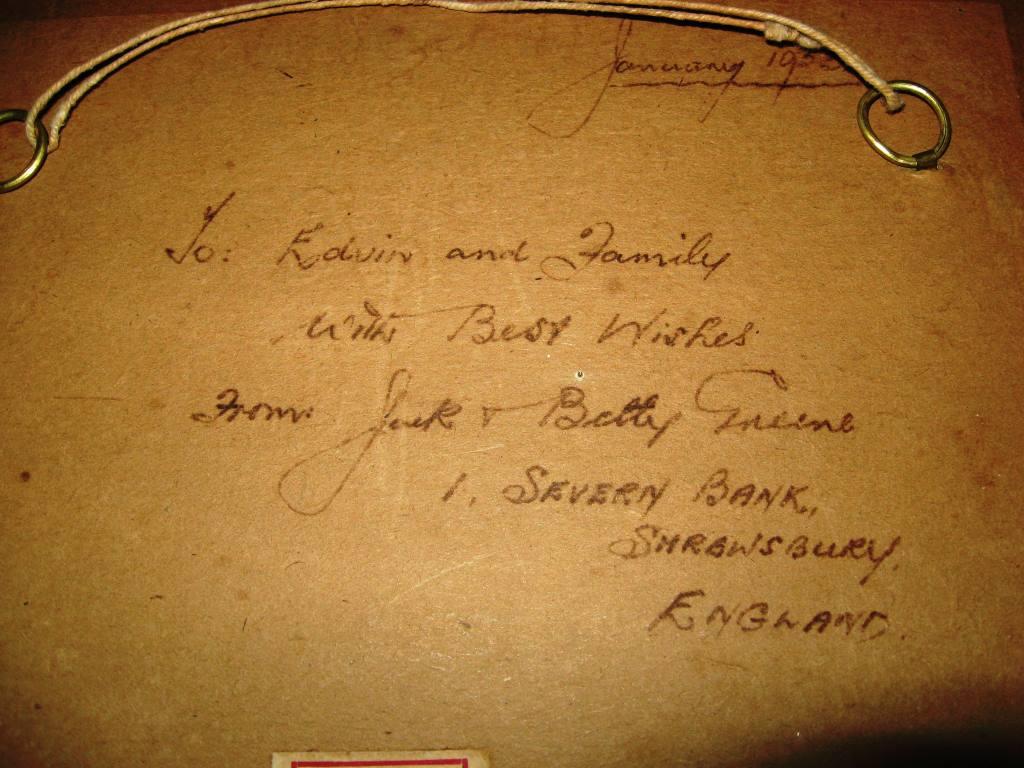 January 1953
To: Edwin and Family
With Best Wishes
From: Jack & Betty Greene
1, SEVERN BANK,
SHREWSBURY.
ENGLAND.